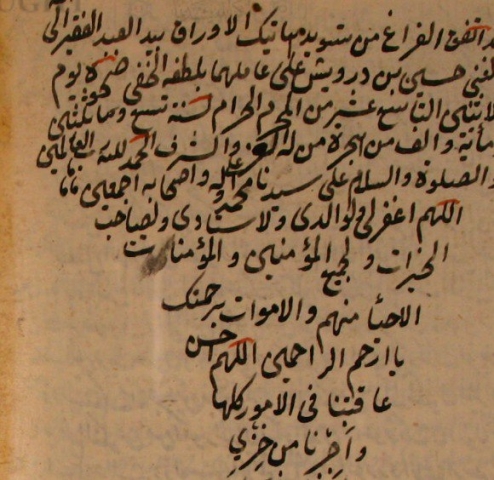 اتفق الفراغ من تسويد هاتيك الاوراق بيد العبد الفقير الى
حسين بن درويش على عاملهما بلطفه الخفي ضحوة يوم
الاثنين التاسع عشر من المحرم الحرام لسنة تسع وثمانين
مائة والف من هجرة من له العز والشرف الحمد لله رب العالمين
والصلوة والسلام على سيدنا محمد وعلى اله واصحابه اجمعين
اللهم اغفر لي ولوالدي ولاستادي ولصاحب
الخيرات ولجميع المؤمنين والمؤمنات
الاحيا منهم والاموات برحمتك
يا ارحم الراحمين اللهم احسن
عاقبتنا في الامور كلها
واجرنا من خزي